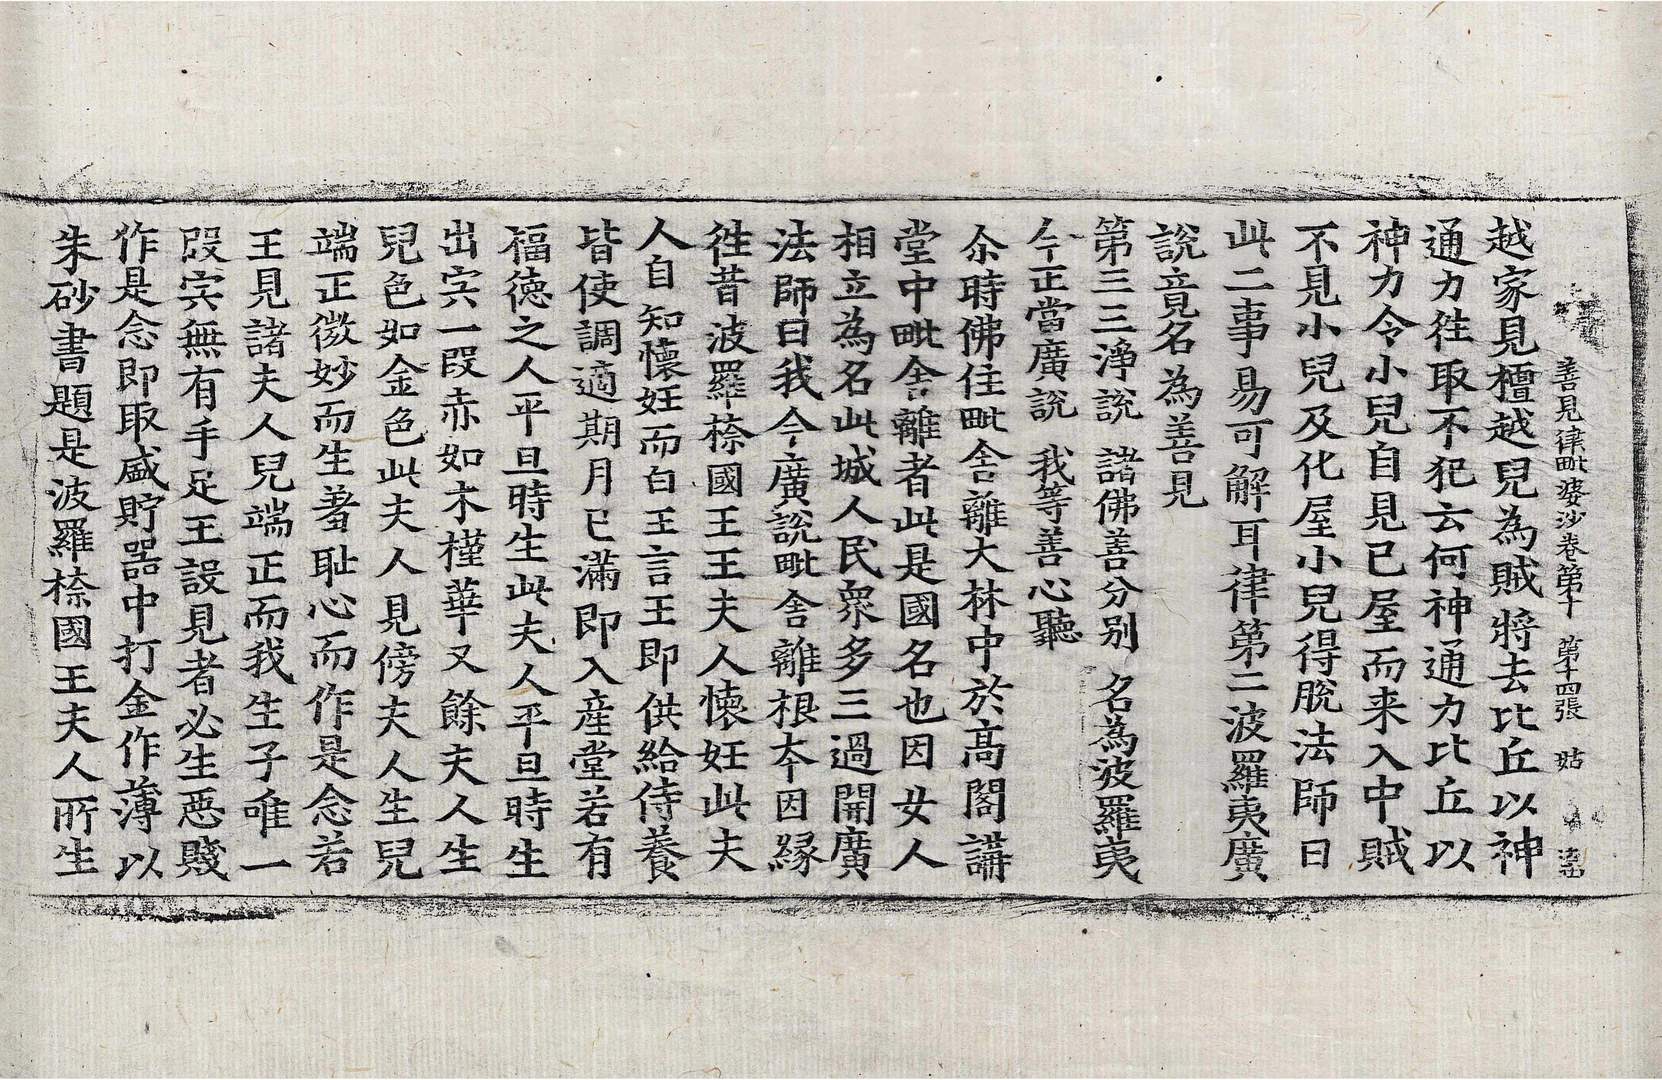 善見律毗婆沙卷第十　第十四張　姑
越家見檀越兒為賊將去比丘以神
通力往取不犯云何神通力比丘以
神力令小兒自見已屋而来入中賊
不見小兒及化屋小兒得脫法師曰
此二事易可解耳律第二波羅夷廣
說竟名為善見
第三三淨說　諸佛善分別　名為波羅夷
今正當廣說　我等善心聽
尒時佛住毗舍離大林中於高閣講
堂中毗舍離者此是國名也因女人
相立為名此城人民衆多三過開廣
法師曰我今廣說毗舍離根本因縁
往昔波羅㮈國王王夫人懷妊此夫
人自知懷妊而白王言王即供給侍養
皆使調適期月已滿即入產堂若有
福德之人平旦時生此夫人平旦時生
出宍一段赤如木槿華又餘夫人生
兒色如金色此夫人見傍夫人生兒
端正微妙而生羞恥心而作是念若
王見諸夫人兒端正而我生子唯一
段宍無有手足王設見者必生惡賤
作是念即取盛貯器中打金作薄以
朱砂書題是波羅㮈國王夫人所生